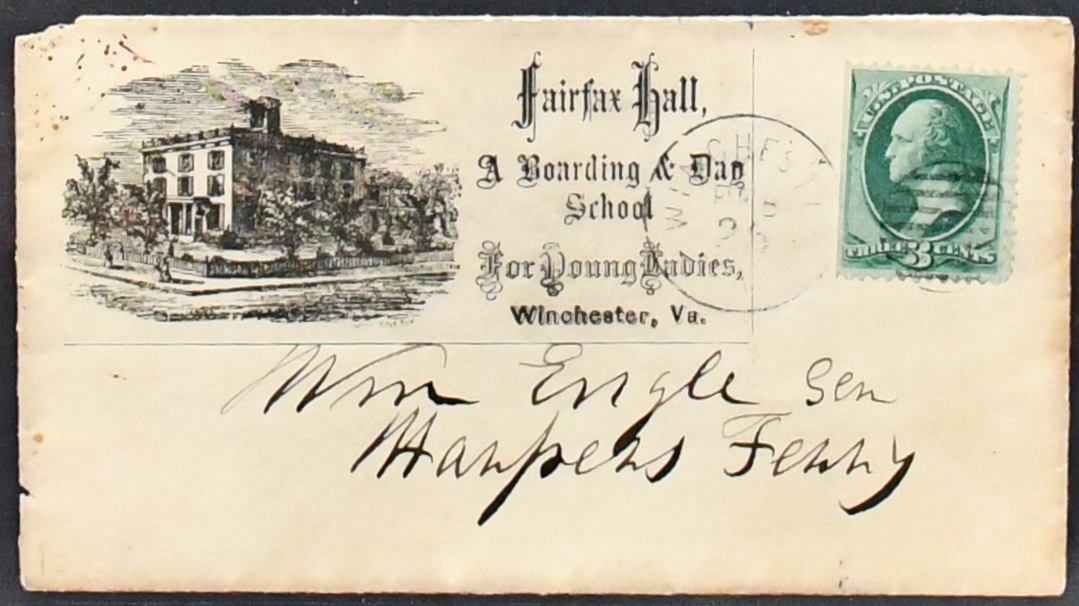 Fairfax Hall,
A Boarding & Day
School
For Young Ladies,
Winchester, Va.
U.S. POSTAGE
THREE 3 CENTS
Wm Engle Sen
Harpers Ferry